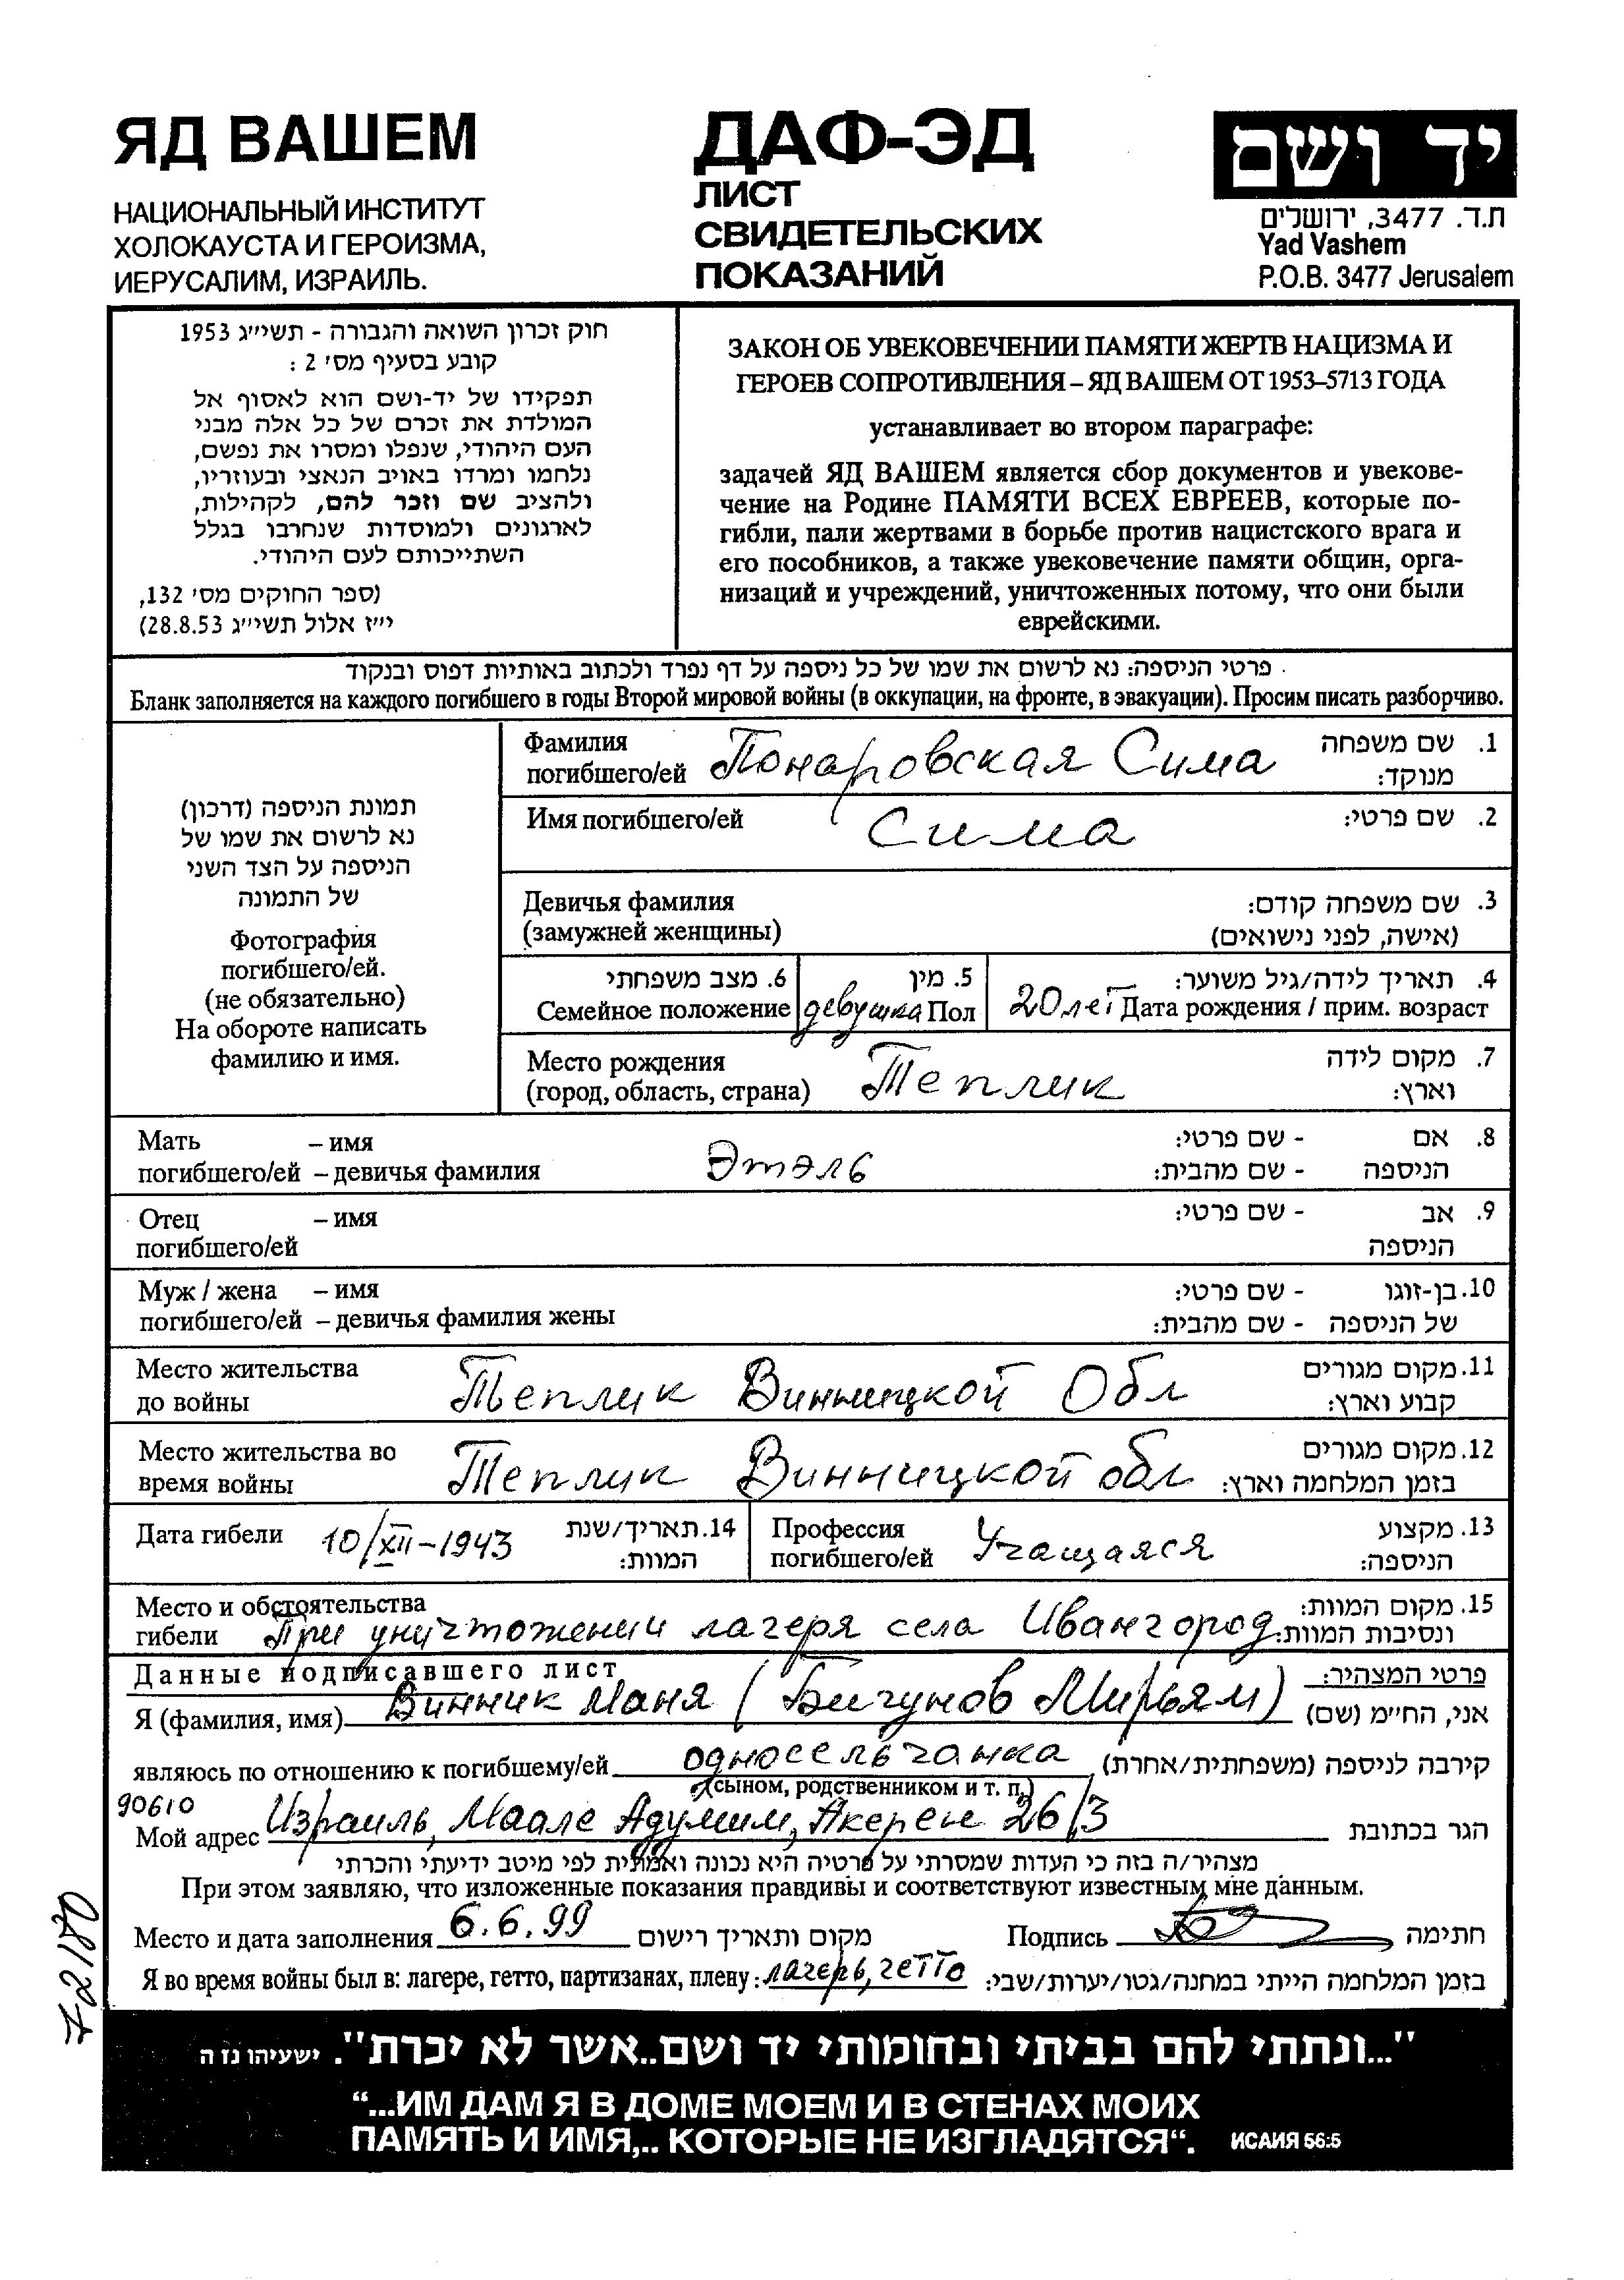 ЯД ВАШЕМ
НАЦИОНАЛЬНЫЙ ИНСТИТУТ
ХОЛОКАУСТА И ГЕРОИЗМА,
ИЕРУСАЛИМ, ИЗРАИЛЬ.
ДАФ-ЭД
ЛИСТ
СВИДЕТЕЛЬСКИХ
ПОКАЗАНИЙ
יד ושם
ת.ד. 3477, ירושלים
Yad Vashem
P.O.B. 3477 Jerusalem
חוק זכרון השואה והגבורה - תשי״ג 1953
קובע בסעיף מס׳ 2 :
תפקידו של יד-ושם הוא לאסוף אל
המולדת את זכרם של כל אלה מבני
העם היהודי, שנפלו ומסרו את נפשם,
נלחמו ומרדו באויב הנאצי ובעוזריו,
ולהציב שם וזכר להם, לקהילות,
לארגונים ולמוסדות שנחרבו בגלל
השתייכותם לעם היהודי.
(ספר החוקים מס׳ 132,
י״ז אלול תשי״ג 28.8.53)
ЗАКОН ОБ УВЕКОВЕЧЕНИИ ПАМЯТИ ЖЕРТВ НАЦИЗМА И
ГЕРОЕВ СОПРОТИВЛЕНИЯ – ЯД ВАШЕМ ОТ 1953–5713 ГОДА
устанавливает во втором параграфе:
задачей ЯД ВАШЕМ является сбор документов и увекове-
чение на Родине ПАМЯТИ ВСЕХ ЕВРЕЕВ, которые по-
гибли, пали жертвами в борьбе против нацистского врага и
его пособников, а также увековечение памяти общин, орга-
низаций и учреждений, уничтоженных потому, что они были
еврейскими.
פרטי הניספה: נא לרשום את שמו של כל ניספה על דף נפרד ולכתוב באותיות דפוס ובנקוד
Бланк заполняется на каждого погибшего в годы Второй мировой войны (в оккупации, на фронте, в эвакуации). Просим писать разборчиво.
תמונת הניספה (דרכון)
נא לרשום את שמו של
הניספה על הצד השני
של התמונה
Фотография
погибшего/ей.
(не обязательно)
На обороте написать
фамилию и имя.
Фамилия
погибшего/ей Понаровская Сима
1. שם משפחה
מנוקד:
Имя погибшего/ей Сима 2. שם פרטי:
Девичья фамилия
(замужней женщины)
3. שם משפחה קודם:
(אישה, לפני נישואים)
6. מצב משפחתי
Семейное положение
5. מין
девушка Пол
4. תאריך לידה/גיל משוער:
20 лет Дата рождения / прим. возраст
Место рождения
(город, область, страна) Теплик
7. מקום לידה
וארץ:
Мать – имя
погибшего/ей – девичья фамилия
Этэль
8. אם - שם פרטי:
הניספה - שם מהבית:
Отец – имя
погибшего/ей
9. אב - שם פרטי:
הניספה
Муж / жена – имя
погибшего/ей – девичья фамилия жены
10. בן-זוגו - שם פרטי:
של הניספה - שם מהבית:
Место жительства
до войны
Теплик Винницкой Обл
11. מקום מגורים
קבוע וארץ:
Место жительства во
время войны
Теплик Винницкой обл
12. מקום מגורים
בזמן המלחמה וארץ:
Дата гибели 10/XII – 1943
14. תאריך/שנת
המוות:
Профессия
погибшего/ей Учащаяся
13. מקצוע
הניספה:
Место и обстоятельства
гибели При уничтожении лагеря села Ивангород
15. מקום המוות:
ונסיבות המוות:
Данные подписавшего лист
פרטי המצהיר:
Я (фамилия, имя) Винник Маня (Бигунов Мирьям) אני, הח״מ (שם)
являюсь по отношению к погибшему/ей односельчанка קירבה לניספה (משפחתית/אחרת)
(сыном, родственником и т. п.)
90610
Мой адрес Израиль, Маале Адумим, Акерен 26/3 הגר בכתובת
99
מצהיר/ה בזה כי העדות שמסרתי על פרטיה היא נכונה ואמתית לפי מיטב ידיעתי והכרתי
При этом заявляю, что изложенные показания правдивы и соответствуют известным мне данным.
Место и дата заполнения 6.6.99 מקום ותאריך רישום Подпись חתימה
Я во время войны был в: лагере, гетто, партизанах, плену: лагерь, гетто בזמן המלחמה הייתי במחנה/גטו/יערות/שבי:
72180
"...ונתתי להם בביתי ובחומותי יד ושם..אשר לא יכרת". ישעיהו נז ה
“...ИМ ДАМ Я В ДОМЕ МОЕМ И В СТЕНАХ МОИХ
ПАМЯТЬ И ИМЯ,.. КОТОРЫЕ НЕ ИЗГЛАДЯТСЯ“. ИСАИЯ 56:5